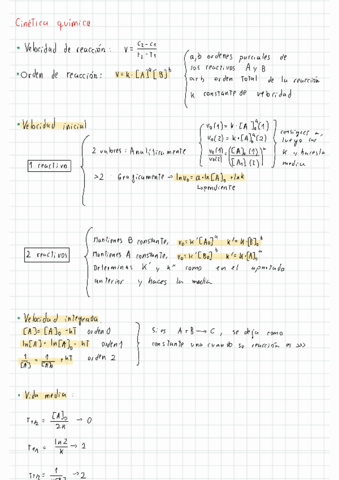 Cinética química
• Velocidad de reacción: v = (c2 - c1)/(t2 - t1)
• Orden de reacción: v = k·[A]^a[B]^b
a, b ordenes parciales de los reactivos A y B
a+b orden total de la reacción
k constante de velocidad
• Velocidad inicial
1 reactivo
2 valores: Analíticamente
v0(1) = k·[A]0^a(1)
v0(2) = k·[A]0^a(2)
v0(1)/v0(2) = ([A]0(1)/[A0](2))^a
luego las
k y haces la
media
>2 Graficamente → lnv0 = a·ln[A]0 + lnk
pendiente
2 reactivos
Mantienes B constante, v0 = k'[A0]^a k' = k·[B]0^b
Mantienes A constante, v0 = k''[B0]^b k'' = k·[A]0^a
Determinas k' y k'' como en el apartado
anterior y haces la media
• Velocidad integrada
[A] = [A]0 - kT orden 0
ln[A] - ln[A]0 = -kT orden 1
1/[A] = 1/[A]0 + kT orden 2
Si es A+B → C, se deja como
constante una cuando su reacción es >>>
• Vida media:
T1/2 = [A]0/2k → 0
T1/2 = ln2/k → 2
T1/2 = 1 → 2